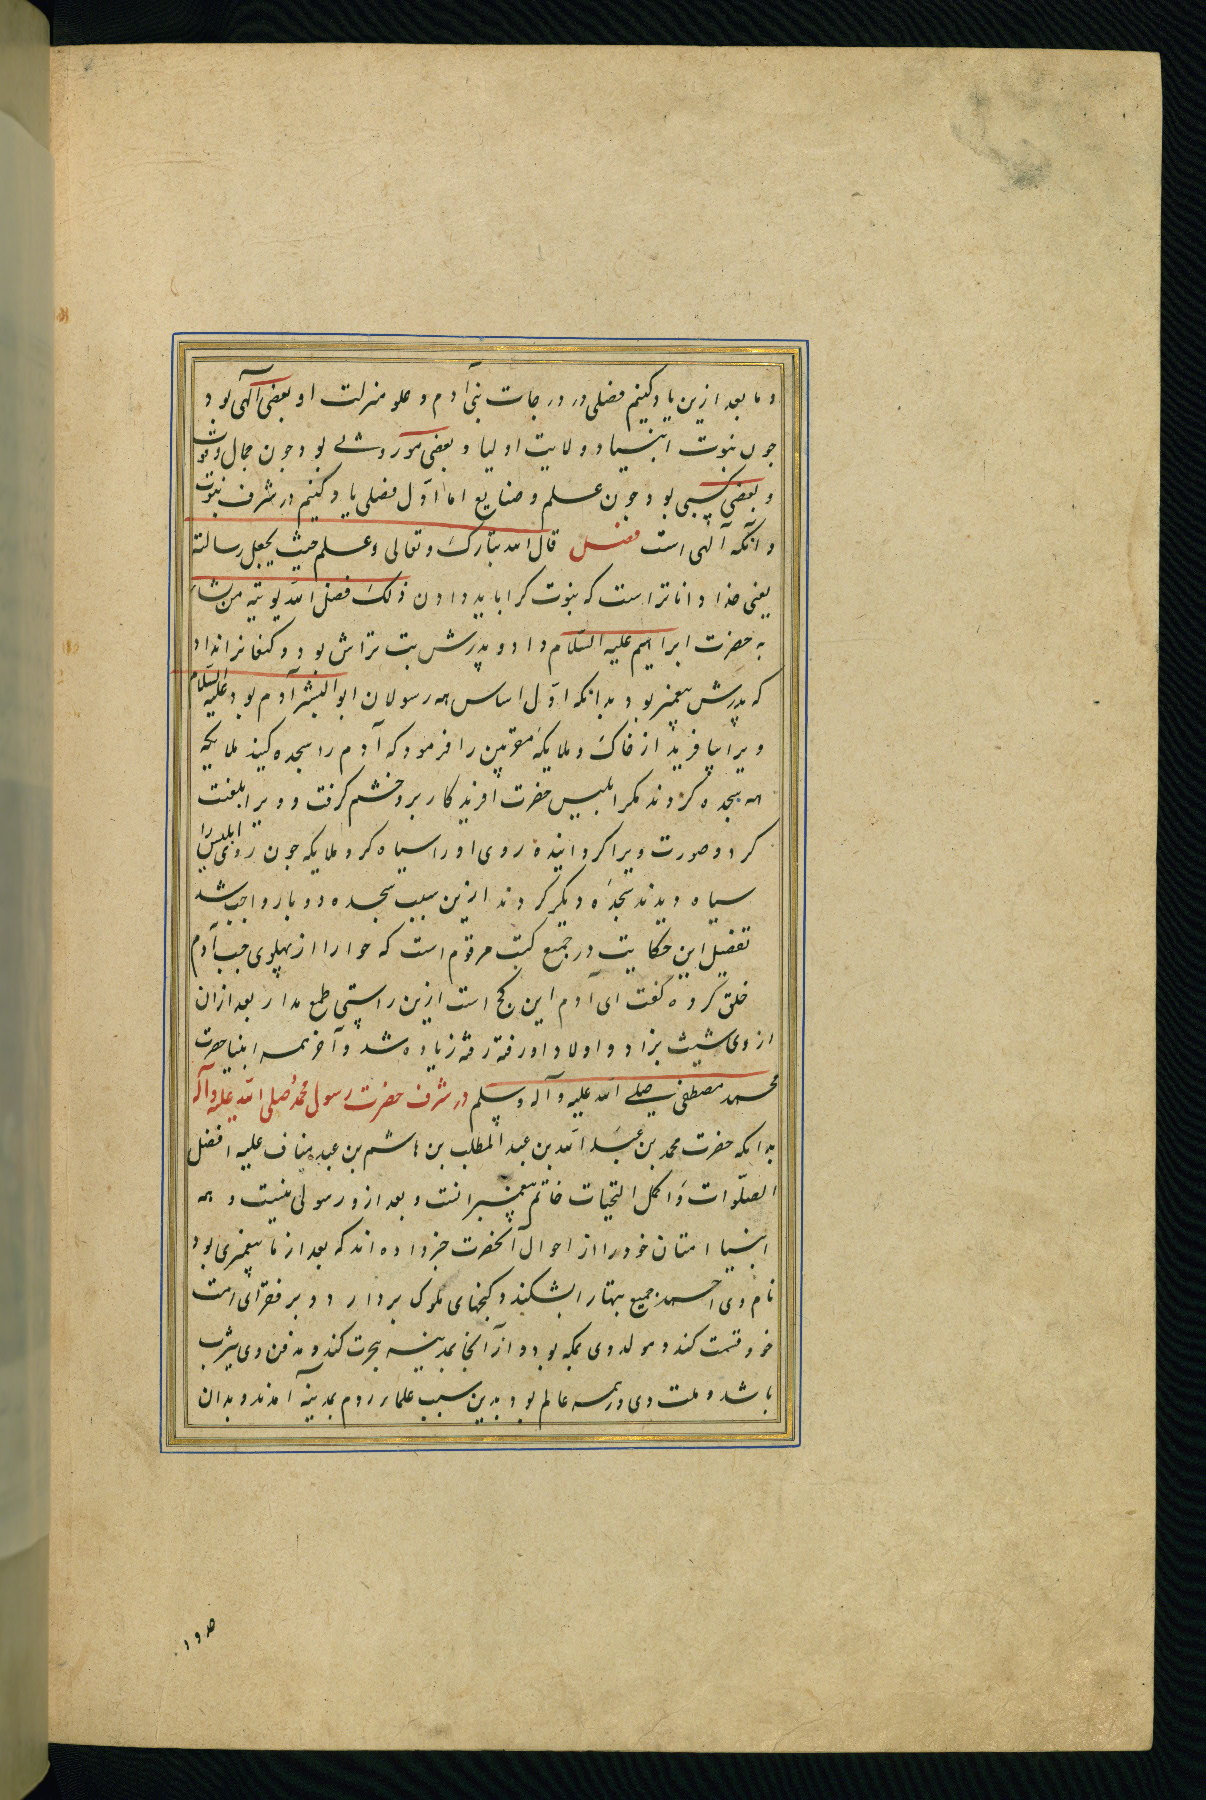 و ما بعد ازین یاد کنیم فصلی در درجات بنی آدم و علو منزلت او بعضی آلهی بود
چون نبوت انبیا و ولایت اولیا و بعضی موروثی بود چون جمال و قوت
و بعضی کسبی بود چون علم و صنایع اما اول فصلی یاد کنیم در شرف نبوت
و آنکه آلهی است فصل قال الله تبارک و تعالی و علم حیث یجعل رسالته
یعنی خدا داناتر است که نبوت کرا باید دادن ذلک فضل الله یوتیه من یشاء
به حضرت ابراهیم علیه السلام داد و پدرش بت تراش بود و کنعانرا نداد
که پدرش پیغمبر بود بدانکه اول اساس همه رسولان ابوالبشر آدم بود علیه السلام
ویرا بیافرید از خاک و ملایکه مقربین را فرمود که آدم را سجده کنید ملایکه
همه سجده کردند مگر ابلیس حضرت آفریدکار برو خشم گرفت و ویرا لعنت
کرد و صورت ویرا گردانیده روی او را سیاه کرد ملایکه چون روی ابلیس را
سیاه دیدند سجده دیگر کردند ازین سبب سجده دوبار واجب شد
تفصیل این حکایت در جمیع کتب مرقوم است که حوا را از پهلوی چپ آدم
خلق کرده گفت ای آدم این کج است ازین راستی طمع مدار بعد ازان
از وی شیث بزاد و اولاد او رفته رفته زیاده شد و آخر همه انبیا حضرت
محمد مصطفی صلی الله علیه و آله وسلم در شرف حضرت رسول محمد صلی الله علیه و آله
بدانکه حضرت محمد بن عبد الله بن عبد المطلب بن هاشم بن عبد مناف علیه افضل
الصلوات و اکمل التحیات خاتم پیغمبرانست و بعد ازو رسولی نیست و همه
انبیا امتان خود را از احوال آنحضرت خبر داده اند که بعد از ما پیغمبری بود
نام وی احمد جمیع بتهارا بشکند و گنجهای ملوک بردارد و بر فقرای امت
خود قسمت کند و مولد وی بمکه بود و از آنجا بمدینه هجرت کند و مدفن وی یثرب
باشد و ملت وی در همه عالم بود بدین سبب علماء روم بمدینه آمدند و بدان